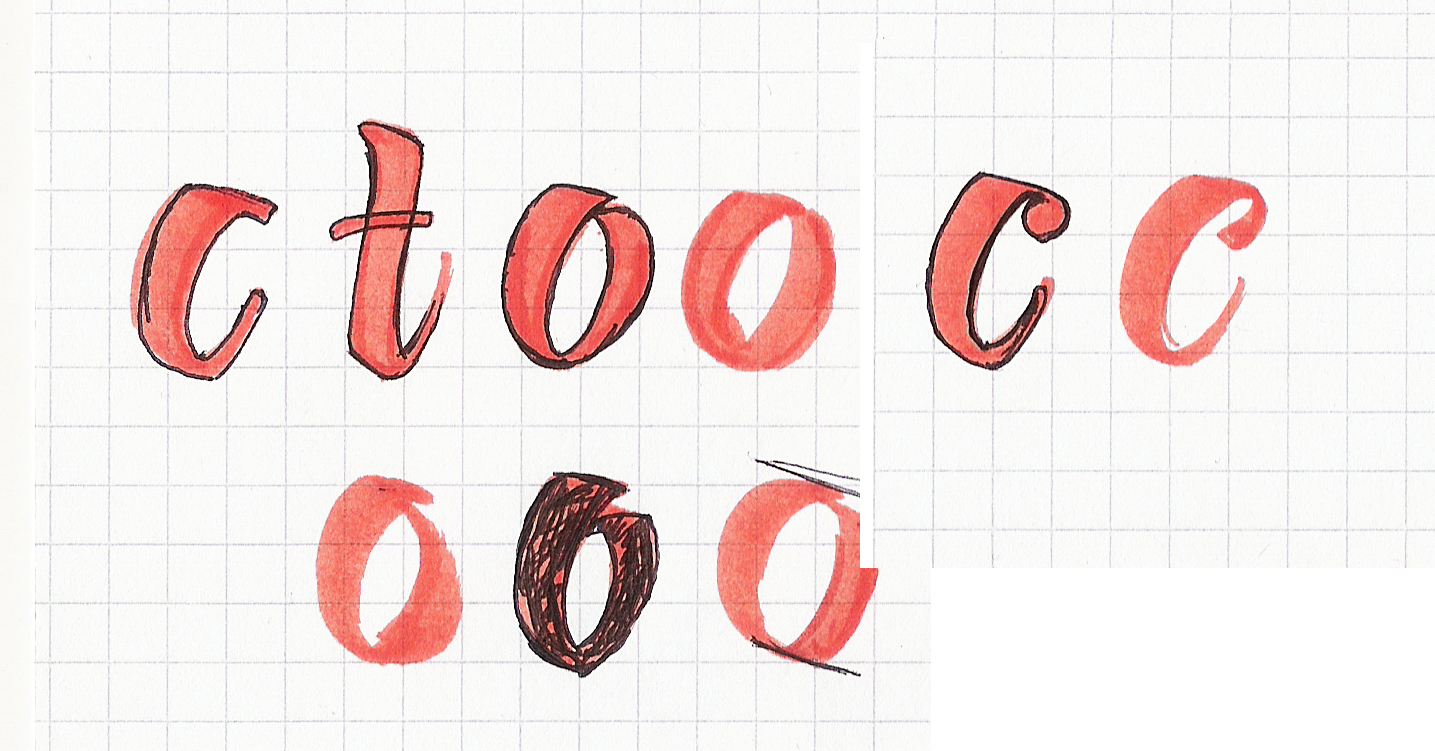 c t o o c c
o o o